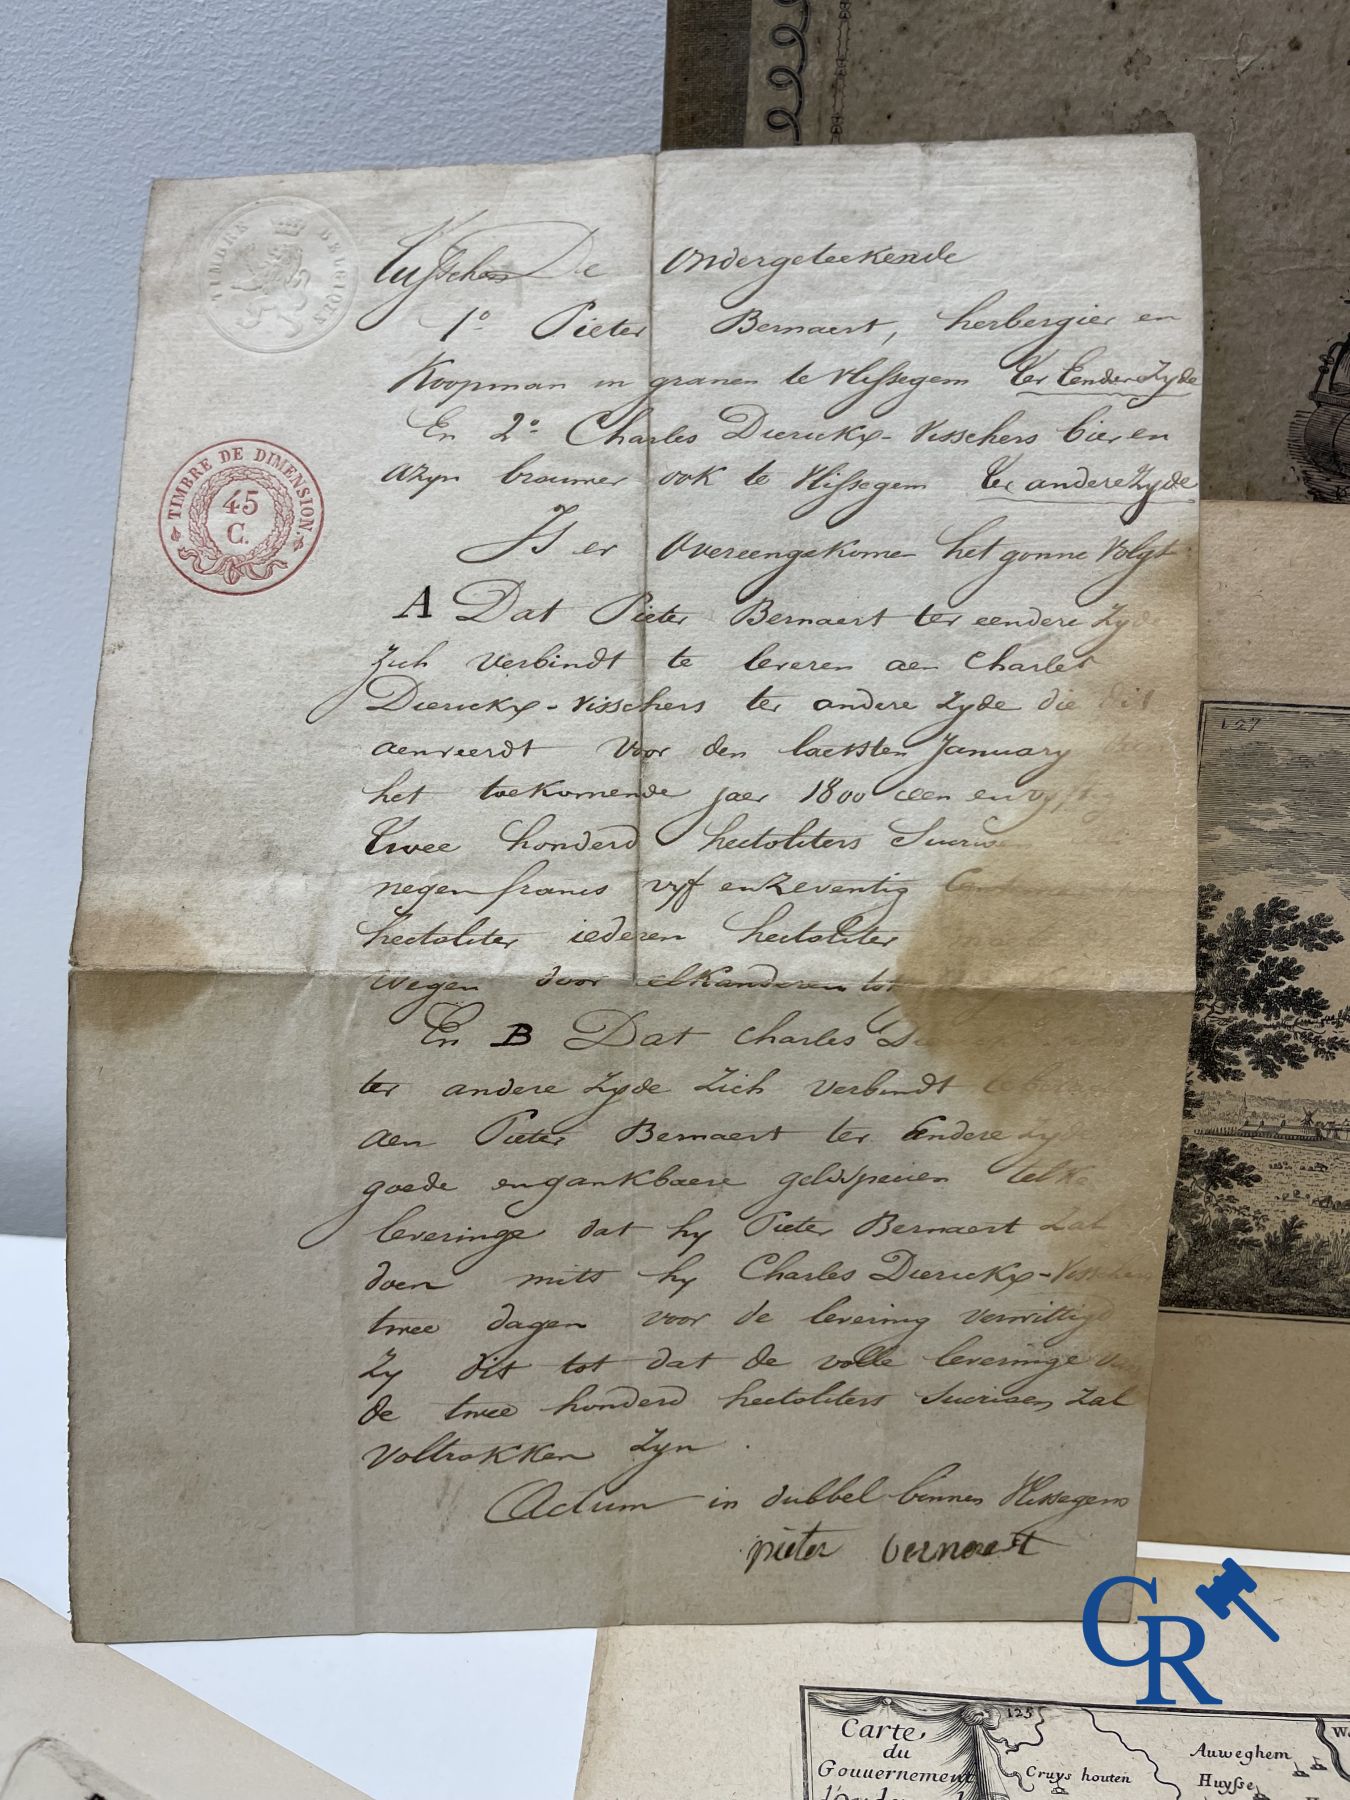 TIMBRE BELGIQUE
TIMBRE DE DIMENSION.
45
C.
Tusschen De Ondergeteekende
1º Pieter Bernaert, herbergier en
Koopman in granen te Vlissegem Ter Eender Zyde
En 2º Charles Dierickx-Visschers bier en
azyn brouwer ook te Vlissegem Ter andere Zyde
Is er Overeengekomen het gonne Volgt
A Dat Pieter Bernaert ter eendere Zyde
Zich verbindt te leveren aen Charles
Dierickx-Visschers ter andere Zyde die dit
aenveerdt voor den laetsten January
het toekomende jaer 1800 een en vyftig
Twee honderd hectoliters Sucrioen
negen francs vyf en Zeventig
hectoliter iederen hectoliter
wegen door elkanderen tot
En B Dat Charles
ter andere Zyde Zich verbindt te
aen Pieter Bernaert ter Eendere Zyde
goede en gankbaere geldspecien telke
leveringe dat hy Pieter Bernaert Zal
doen mits hy Charles Dierickx-Visschers
twee dagen voor de levering verwittigd
Zy dit tot dat de volle leveringe van
de twee honderd hectoliters Sucrioen Zal
voltrokken Zyn.
Actum in dubbel binnen Vlissegem
pieter bernaert
127
CR
125
Carte
du
Gouuernement
Cruys houten
Auweghem
Huysse